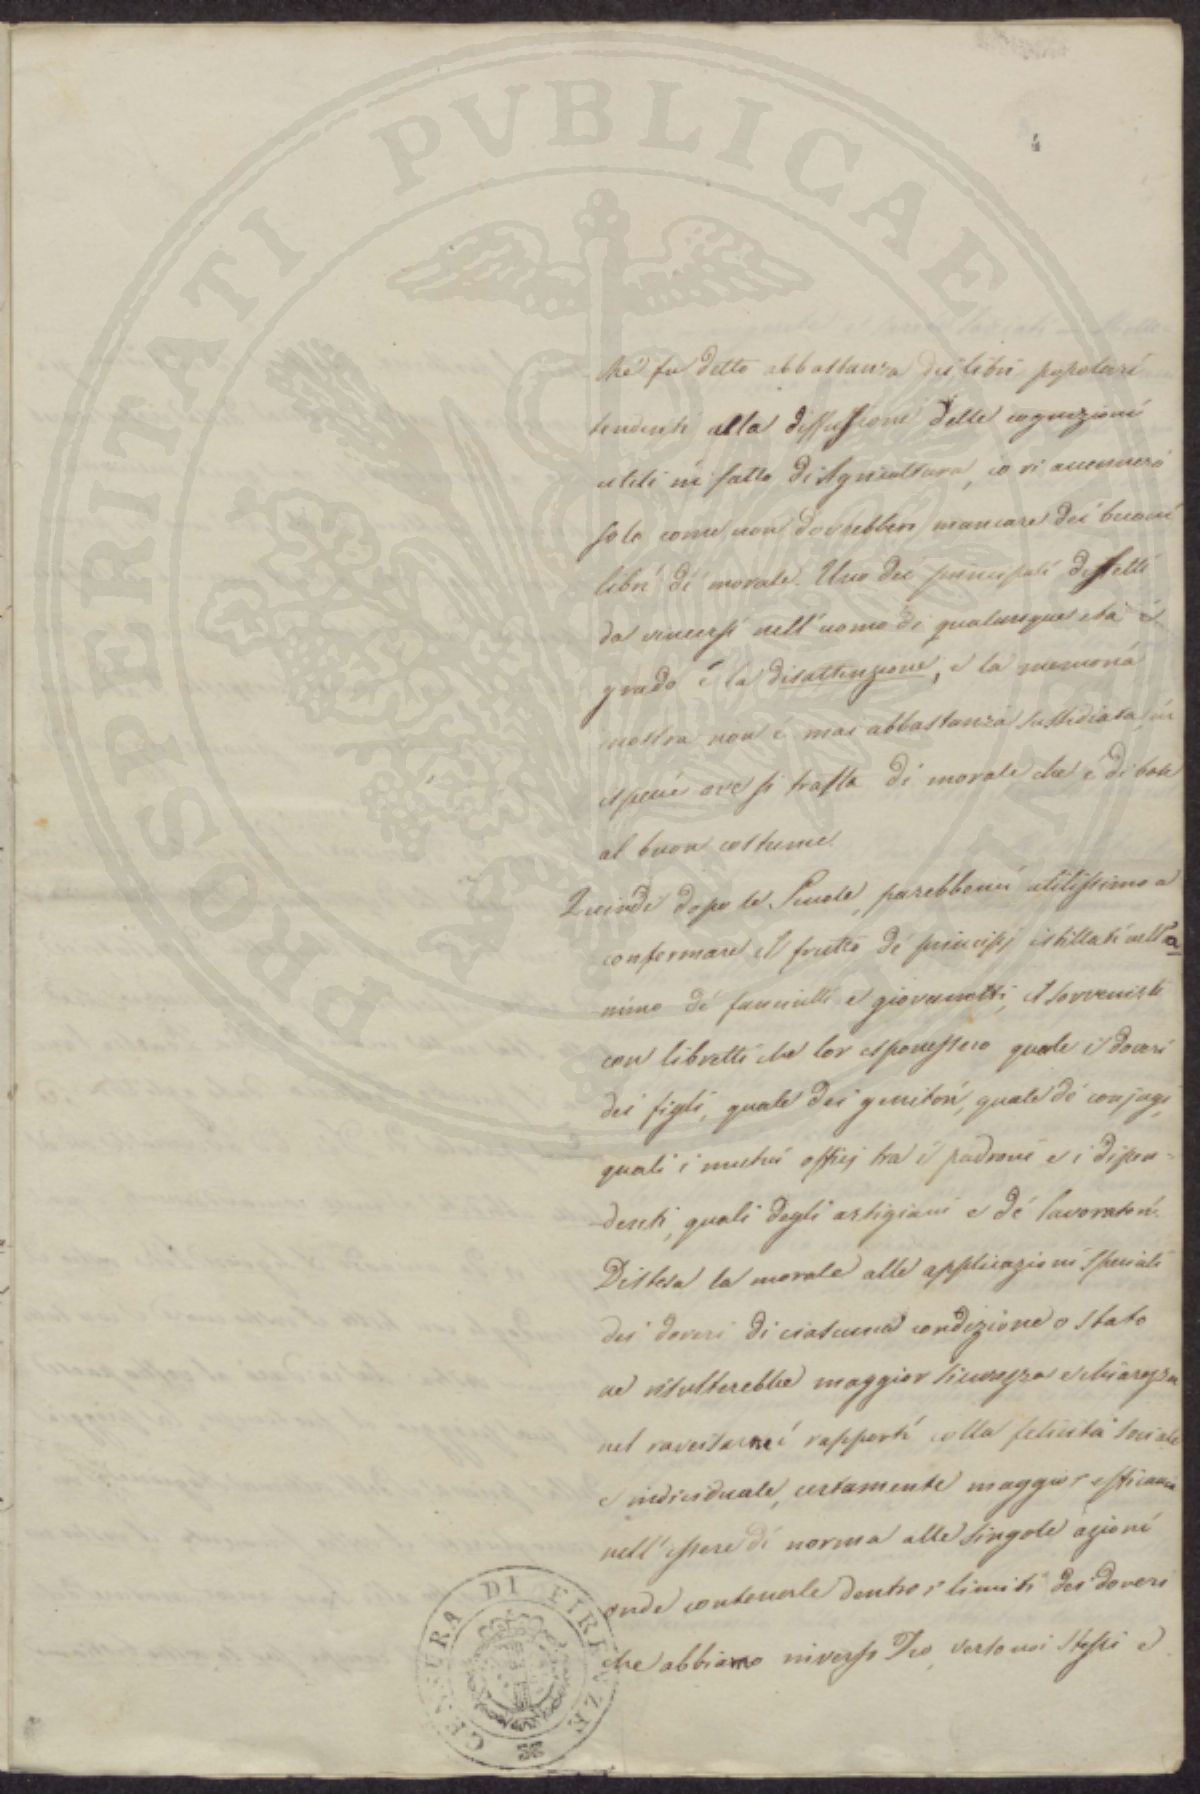 ché fu detto abbastanza dei libri popolari
tendenti alla diffusione delle cognizioni
utili in fatto di Agricoltura, io vi accennerò
solo come non dovrebbero mancare dei buoni
libri di morale. Uno dei principali difetti
da vincersi nell'uomo di qualunque età e
grado è la disattenzione, e la memoria
nostra non è mai abbastanza sussidiata, in
specie ove si tratta di morale che è di base
al buon costume.
Quindi dopo le Scuole, parebbemi utilissimo a
confermare il frutto de' principj istillati nell'a
nimo de' fanciulli e giovanetti, il sovvenirli
con libretti che lor esponessero quale i doveri
dei figli, quale dei genitori, quale de' conjugi,
quali i mutui officj tra i padroni e i dipen-
denti, quali degli artigiani e de' lavoratori.
Distesa la morale alle applicazioni speciali
dei doveri di ciascuna condizione o stato
ne risulterebbe maggior sicurezza e chiarezza
nel ravvisarne i rapporti colla felicità sociale
e individuale, certamente maggior efficacia
nell'essere di norma alle singole azioni
onde contenerle dentro i limiti dei doveri
che abbiamo inverso Dio, verso noi stessi e
CENSURA DI FIRENZE
PROSPERITATI PUBLICAE